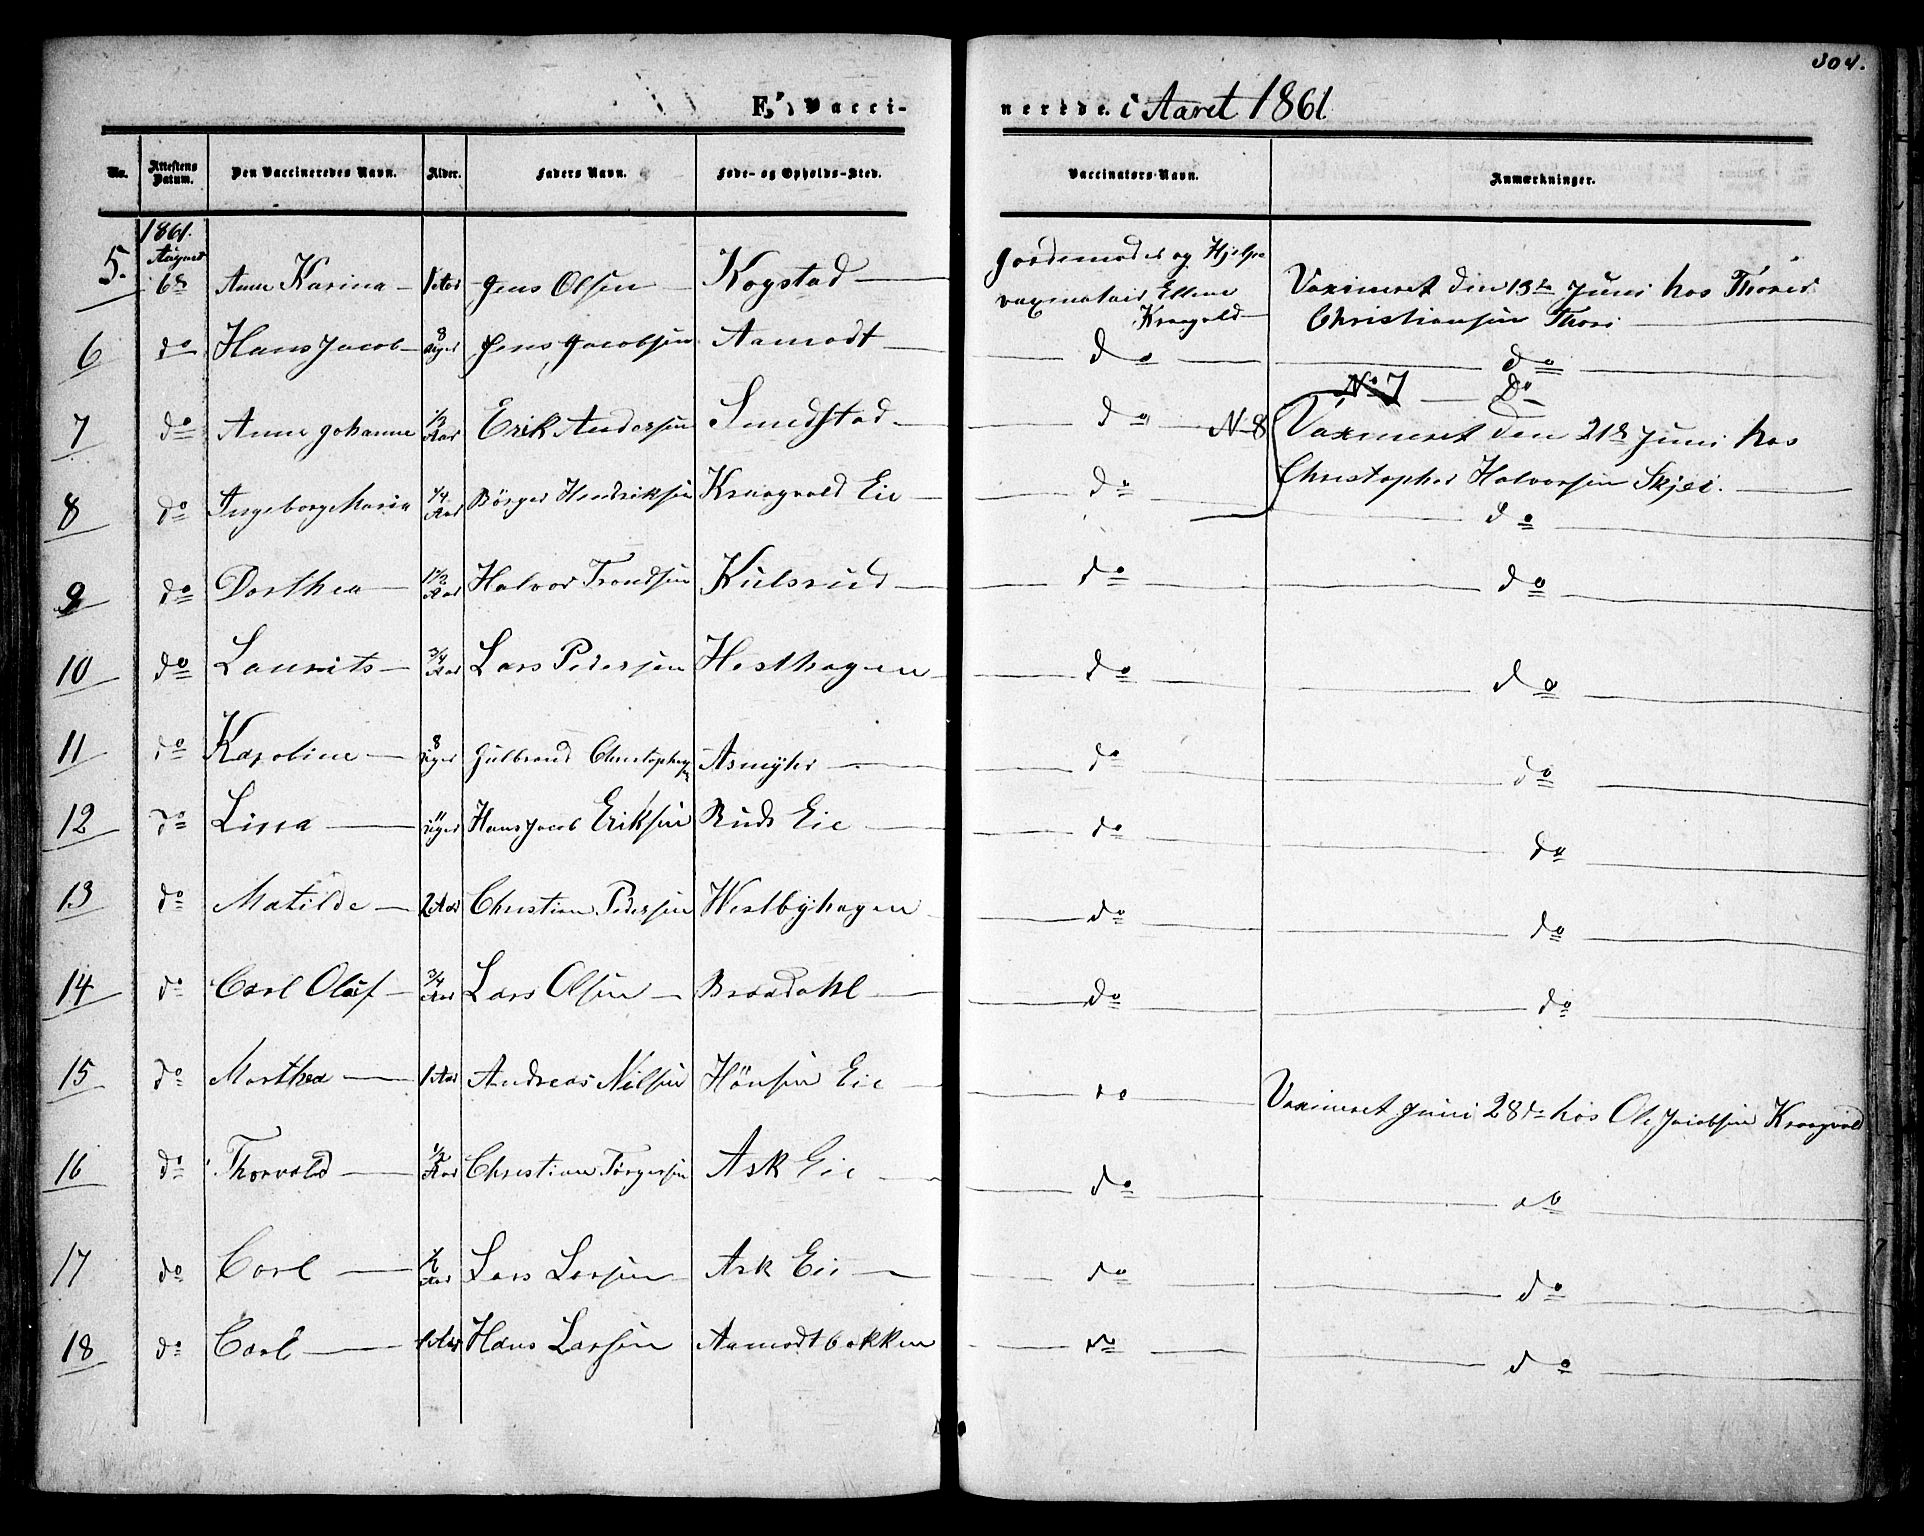 304.
E, Vacci-
nerede. i Aaret 1861.
No. Attestens Datum. Den Vaccineredes Navn. Alder. Faders Navn. Føde- og Opholds-Sted. Vaccinators-Navn. Anmærkninger.
1861.
5. August 6te Anne Karina 1 Aar Jens Olsen Kogstad Jordemoder og Hjelpe vaxinateir Ellene Kraagvold Vaximeret den 13de Juni hos Thorer Christiansen Thori
6 do Hans Jacob 8 uger Jens Jacobsen Aamodt do do
No 7 Do
7 do Anne Johanne 1/2 Aar Erik Andersen Smedstad do
N 8 Vaximeret den 21de Juni hos Christopher Halvorsen Skjei.
8 do Ingeborg Maria 1/4 Aar Børger Hendriksen Kraagvold Eie do do
9 do Dorthea 1 1/2 Aar Halvor Trondsen Kulsrud do do
10 do Laurits 3/4 Aar Lars Pedersen Hesthagen do do
11 do Karoline 8 uger Gulbrand Christophersen Asmyhr do do
12 do Lissa 11 uger Hans Jacob Eriksen Ruds Eie do do
13 do Matilde 2 Aar Christian Pedersen Westbyhagen do do
14 do Carl Oluf 3/4 Aar Lars Olsen Braadahl do do
15 do Marthea 1 Aar Andreas Nilsen Hönsen Eie do Vaximeret Juni 28de hos Ole Jacobsen Kraagvold
16 do Thorvald 1/2 Aar Christian Torgersen Ask Eie do do
17 do Carl Aar Lars Larsen Ask Eie do do
18 do Carl 1 Aar Hans Larsen Aamodtbakken do do